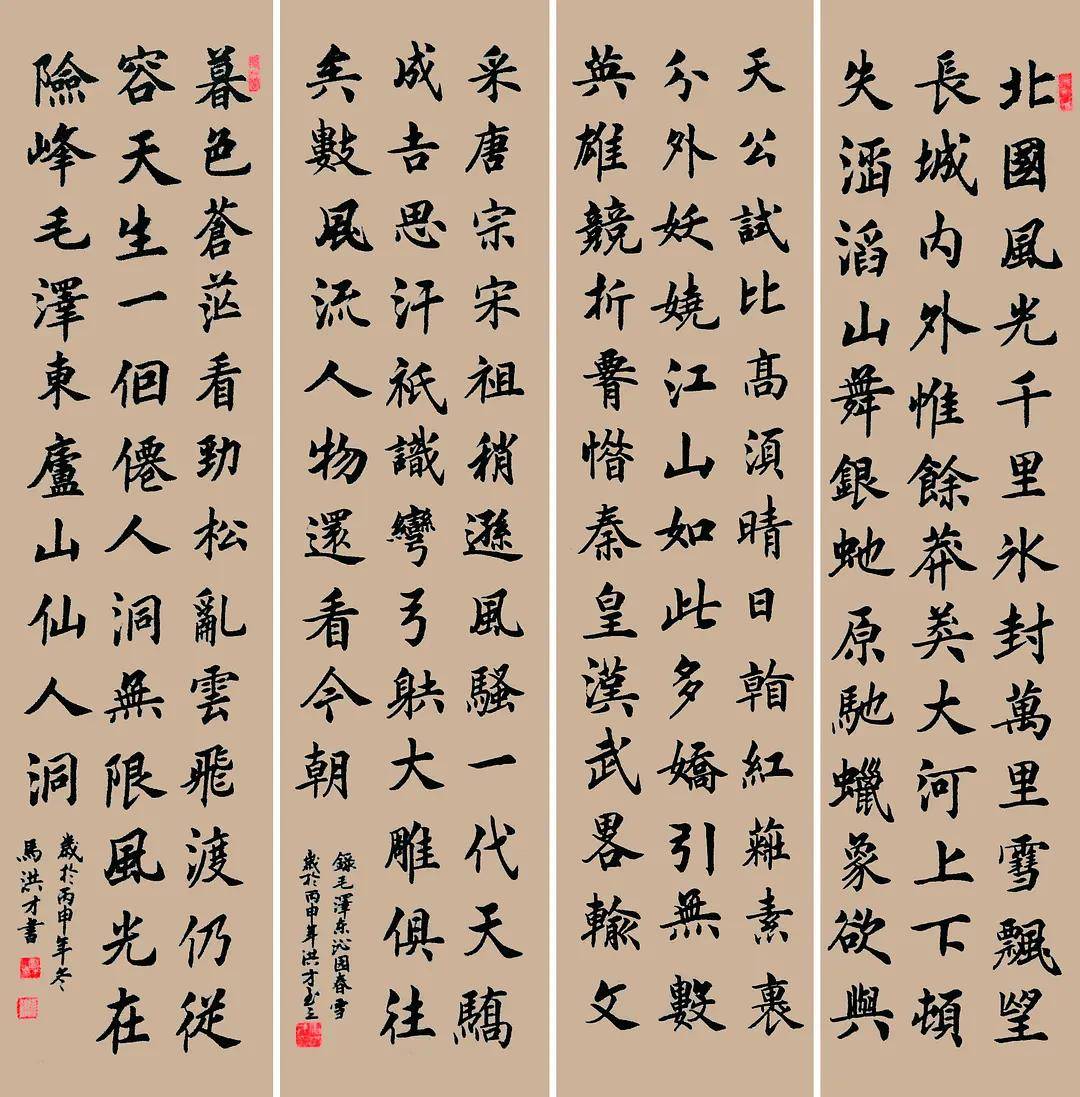 北國風光千里氷封萬里雪飄望
長城内外惟餘莽莽大河上下頓
失滔滔山舞銀虵原馳蠟象欲與
天公試比髙須晴日看紅素裹
分外妖嬈江山如此多嬌引無數
英雄競折惜秦皇漢武畧輸文
采唐宗宋祖稍遜風騷一代天驕
成吉思汗祇識彎弓射大雕俱往
矣數風流人物還看今朝
錄毛澤东沁园春雪
歲於丙申年洪才書
暮色蒼茫看勁松亂雲飛渡仍從
容天生一個僊人洞無限風光在
險峰毛澤東廬山仙人洞
歲於丙申年冬
馬洪才書